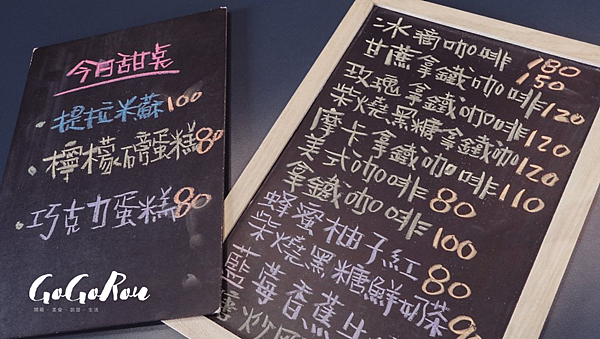 今月甜点
·提拉米蘇100
·檸檬磅蛋糕80
·巧克力蛋糕80
GoGoRou
冰滴咖啡180
甘蔗拿鐵咖啡150
玫瑰拿鐵咖啡120
柴燒黑糖拿鐵咖啡120
摩卡拿鐵咖啡120
美式咖啡110
拿鐵咖啡80
100
蜂蜜柚子紅
柴燒黑糖鮮奶茶80
藍莓香蕉牛